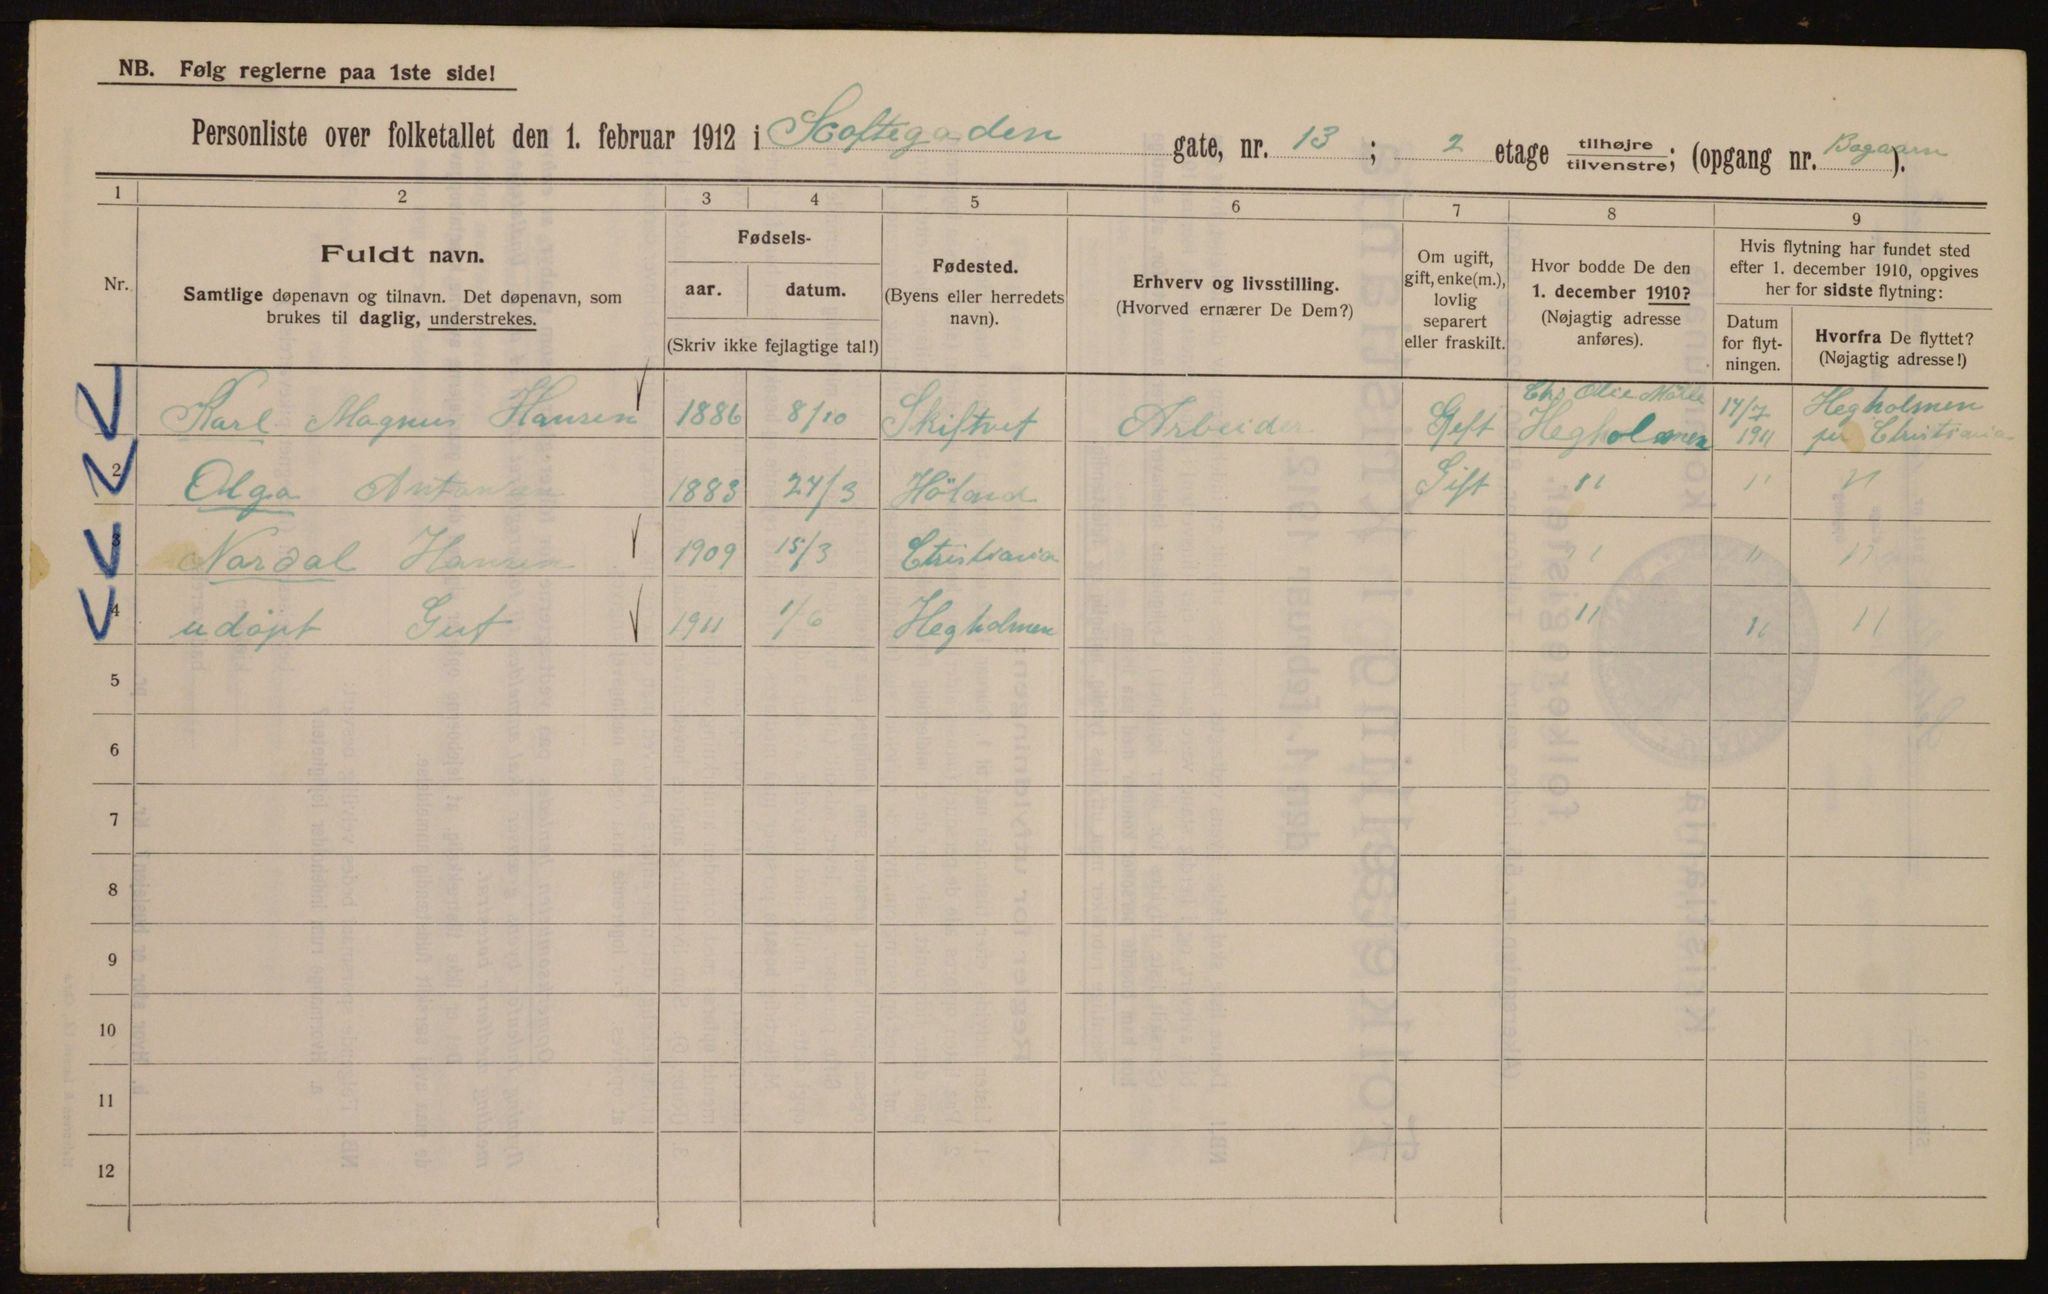 NB. Følg reglerne paa 1ste side!
Personliste over folketallet den 1. februar 1912 i Scoftegaden gate, nr. 13 ; 2 etage tilhøjre tilvenstre; (opgang nr. Bagaarn ).
1 2 3 4 5 6 7 8 9
Nr.
Fuldt navn.
Samtlige døpenavn og tilnavn. Det døpenavn, som
brukes til daglig, understrekes.
Fødsels-
aar. datum.
(Skriv ikke fejlagtige tal!)
Fødested.
(Byens eller herredets
navn).
Erhverv og livsstilling.
(Hvorved ernærer De Dem?)
Om ugift,
gift, enke(m.),
lovlig
separert
eller fraskilt.
Hvor bodde De den
1. december 1910?
(Nøjagtig adresse
anføres).
Hvis flytning har fundet sted
efter 1. december 1910, opgives
her for sidste flytning:
Datum
for flyt-
ningen.
Hvorfra De flyttet?
(Nøjagtig adresse!)
Karl Magnus Hansen 1886 8/10 Skiftvet Arbeider Gift Hegholmen 14/7 1911 Hegholmen per Christiania
2 Olga 1883 24/3 Höland Gift " " "
3 Nordal Hansen 1909 15/3 Christiania " " "
4 udöpt Gut 1911 1/6 Hegholmen " " "
5
6
7
8
9
10
11
12